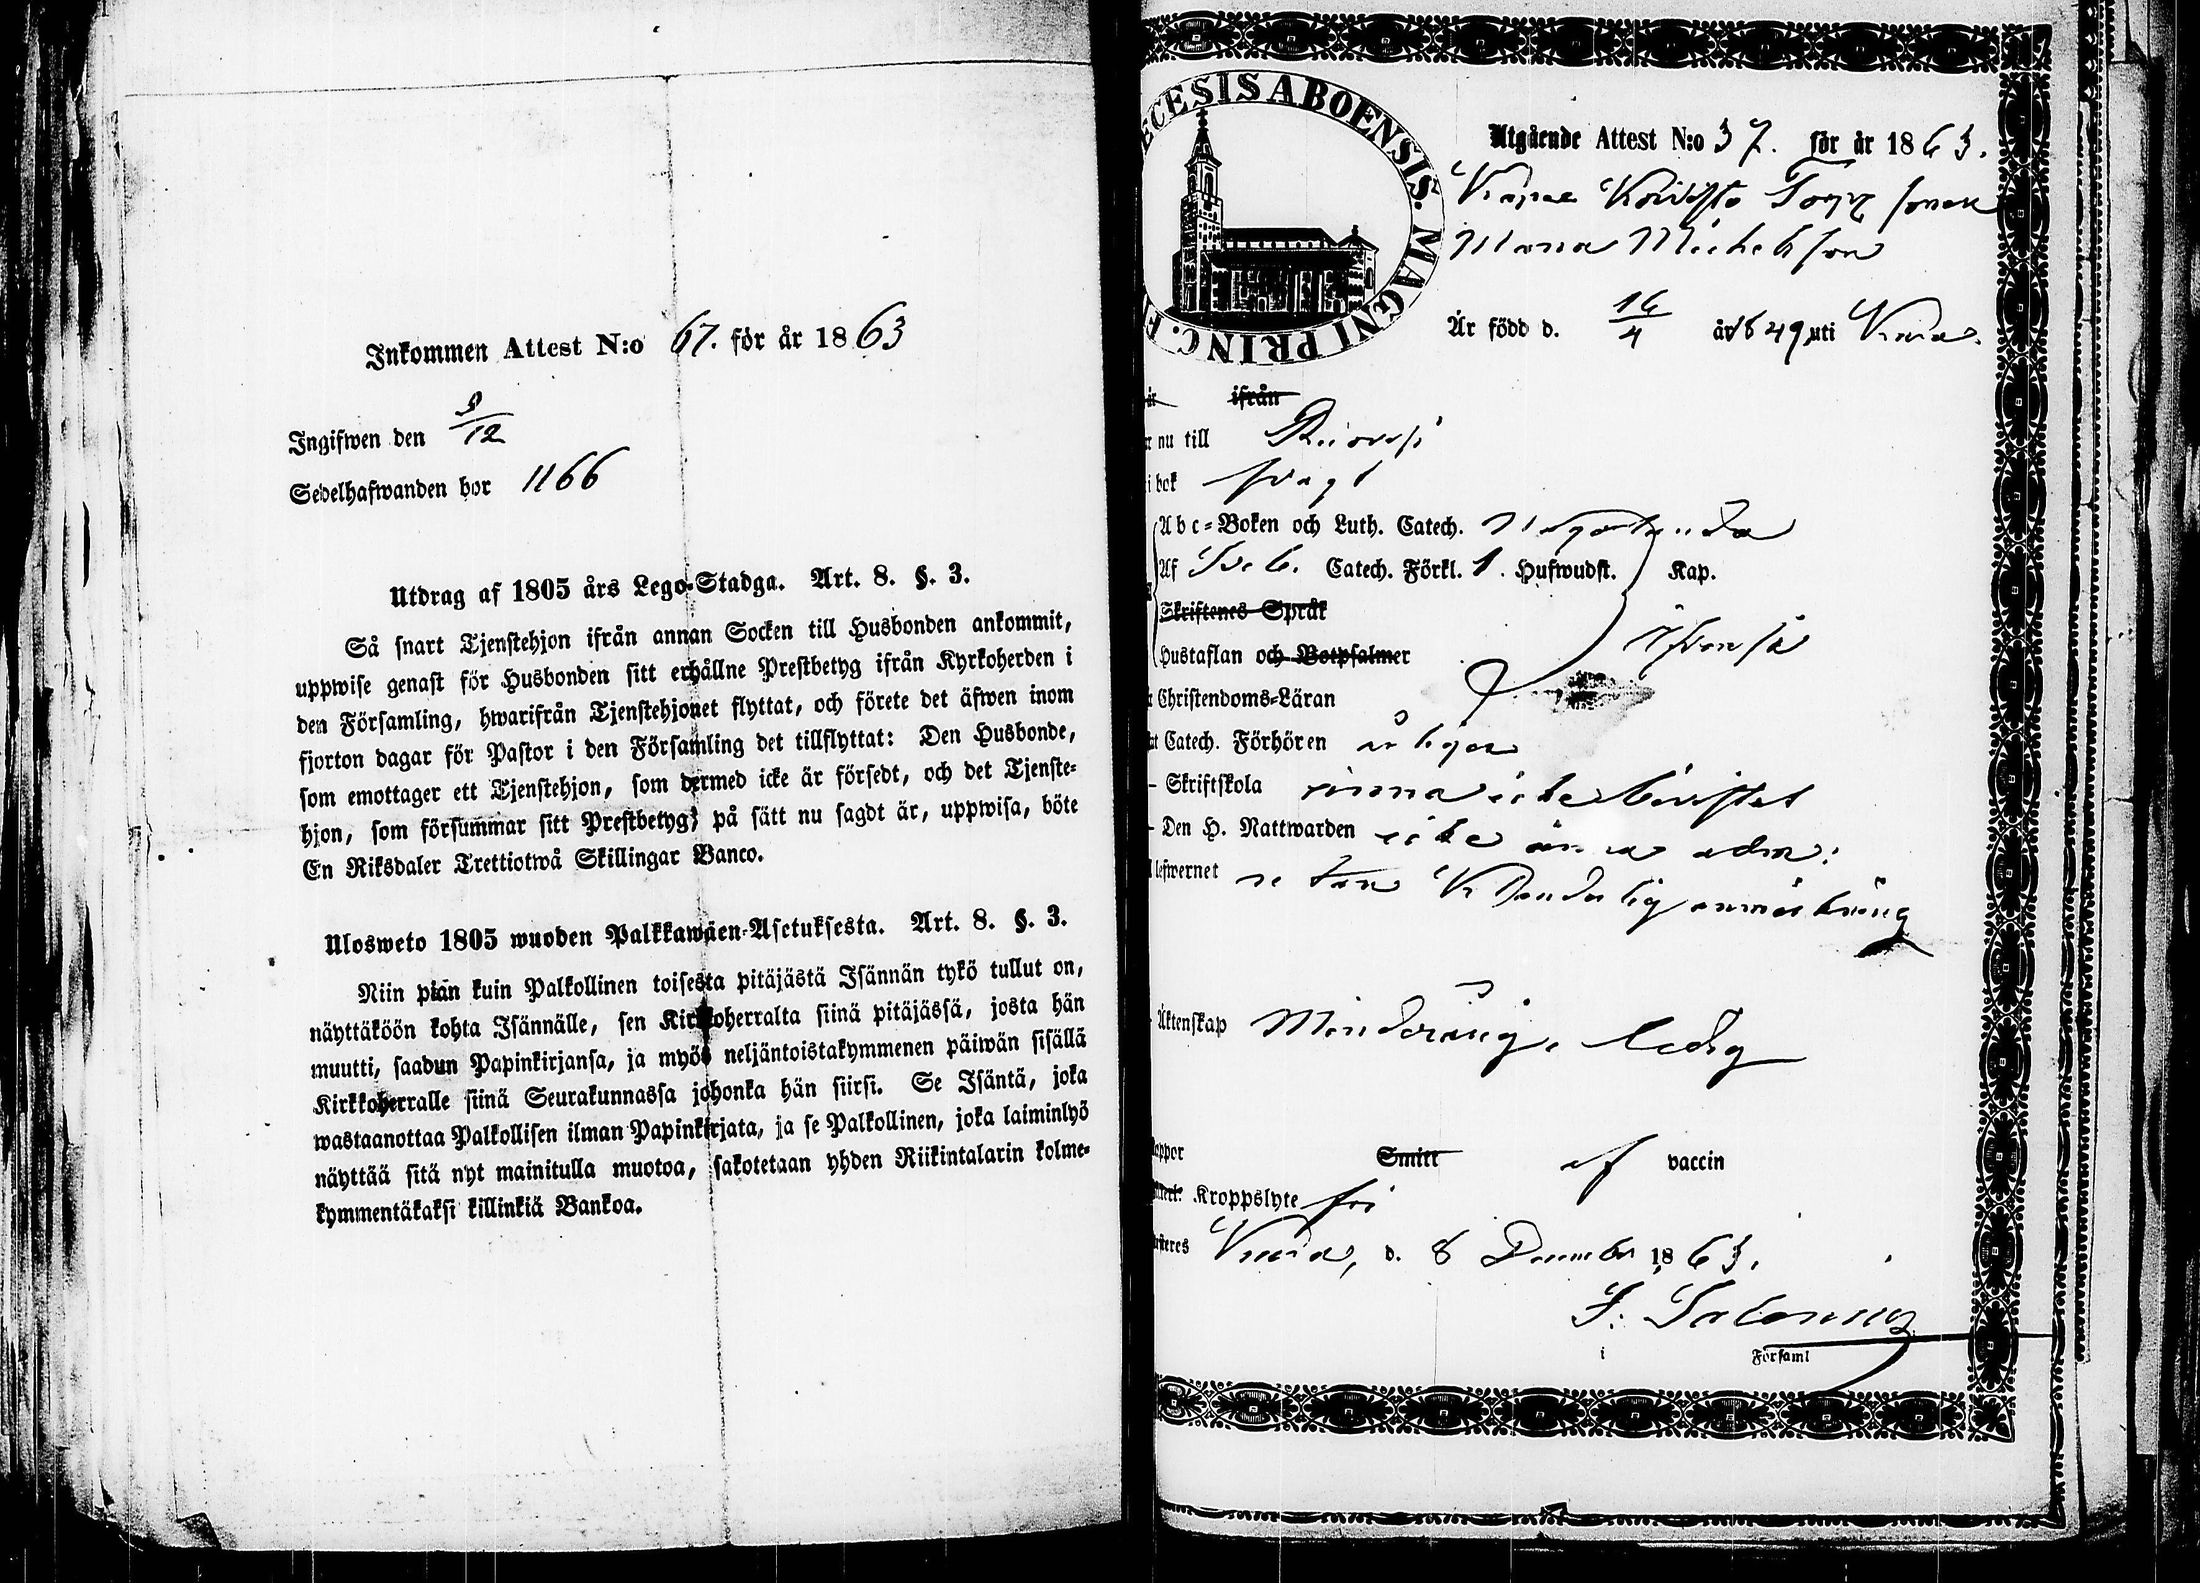 Inkommen Attest N:o 67. för år 1863
Ingifwen den 9/12
Sedelhafwanden bor 1166
Utdrag af 1805 års Lego-Stadga. Art. 8. §. 3.
Så snart Tjenstehjon ifrån annan Socken till Husbonden ankommit,
uppwise genast för Husbonden sitt erhållne Prestbetyg ifrån Kyrkoherden i
den Församling, hwarifrån Tjenstehjonet flyttat, och förete det äfwen inom
fjorton dagar för Pastor i den Församling det tillflyttat: Den Husbonde,
som emottager ett Tjenstehjon, som dermed icke är försedt, och det Tjenste-
hjon, som försummar sitt Prestbetyg, på sätt nu sagdt är, uppwisa, böte
En Riksdaler Trettiotwå Skillingar Banco.
Ulosweto 1805 wuoden Palkkawäen-Asetuksesta. Art. 8. §. 3.
Niin pian kuin Palkollinen toisesta pitäjästä Isännän tykö tullut on,
näyttäköön kohta Isännälle, sen Kirkkoherralta siinä pitäjässä, josta hän
muutti, saadun Papinkirjansa, ja myös neljäntoistakymmenen päiwän sisällä
Kirkkoherralle siinä Seurakunnassa johonka hän siirsi. Se Isäntä, joka
wastaanottaa Palkollisen ilman Papinkirjata, ja se Palkollinen, joka laiminlyö
näyttää sitä nyt mainitulla muotoa, sakotetaan yhden Riikintalarin kolme-
kymmentäkaksi killinkiä Bankoa.
ECESIS ABOENSIS. MAGNI PRINC. F
Utgående Attest N:o 37. för år 1863.
Michelsson
Är född d. 16/4 år 1849 uti Virmo.
ifrån
nu till
i bok svagt
Abc-Boken och Luth. Catech.
Af Sveb. Catech. Förkl. 1. Hufwudst. Kap.
Skriftenes Språk
Hustaflan och Botpsalmer
Christendoms-Läran
Catech. Förhören årligen
Skriftskola ännu icke bevistat
Den H. Nattwarden icke ännu adm:
lefwernet utan anmärkning
Äktenskap Minderårig, ledig
Smitt af vaccin
Kroppslyte fri
Virmo, d. 8 December 1863.
i Församl